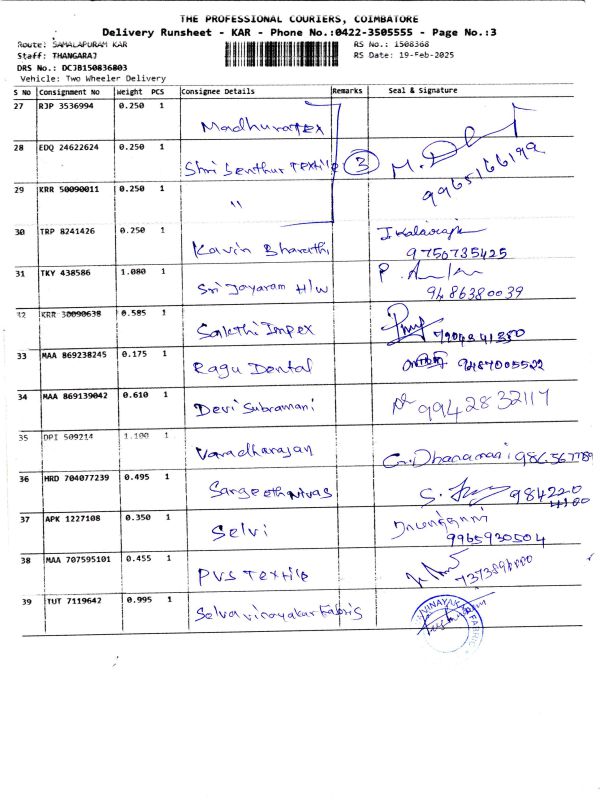 THE PROFESSIONAL COURIERS, COIMBATORE
Delivery Runsheet - KAR - Phone No.:0422-3505555 - Page No.:3
Route: SAMALAPURAM KAR RS No.: 1508368
Staff: THANGARAJ RS Date: 19-Feb-2025
DRS No.: DCJB150836803
Vehicle: Two Wheeler Delivery
S No Consignment No Weight PCS Consignee Details Remarks Seal & Signature
27 RJP 3536994 0.250 1 Madhuratex
28 EDQ 24622624 0.250 1 Shri Senthur Textile 3 9965166199
29 KRR 50090011 0.250 1 "
30 TRP 8241426 0.250 1 Kavin Bharathi 9750735425
31 TKY 438586 1.080 1 Sri Jayaram H/W 9486380039
32 KRR 30090638 0.585 1 Sakthi Impex
33 MAA 869238245 0.175 1 Ragu Dental 9487005522
34 MAA 869139042 0.610 1 Devi Subramani 9942832117
35 DPI 509214 1.100 1 Varadharajan G. Dhanamani
36 HRD 704077239 0.495 1 984220
37 APK 1227108 0.350 1 Selvi 9965930504
38 MAA 707595101 0.455 1 PVS Textile
39 TUT 7119642 0.995 1 Selvavinayakar Fabris VINAYAKAR FABRIC